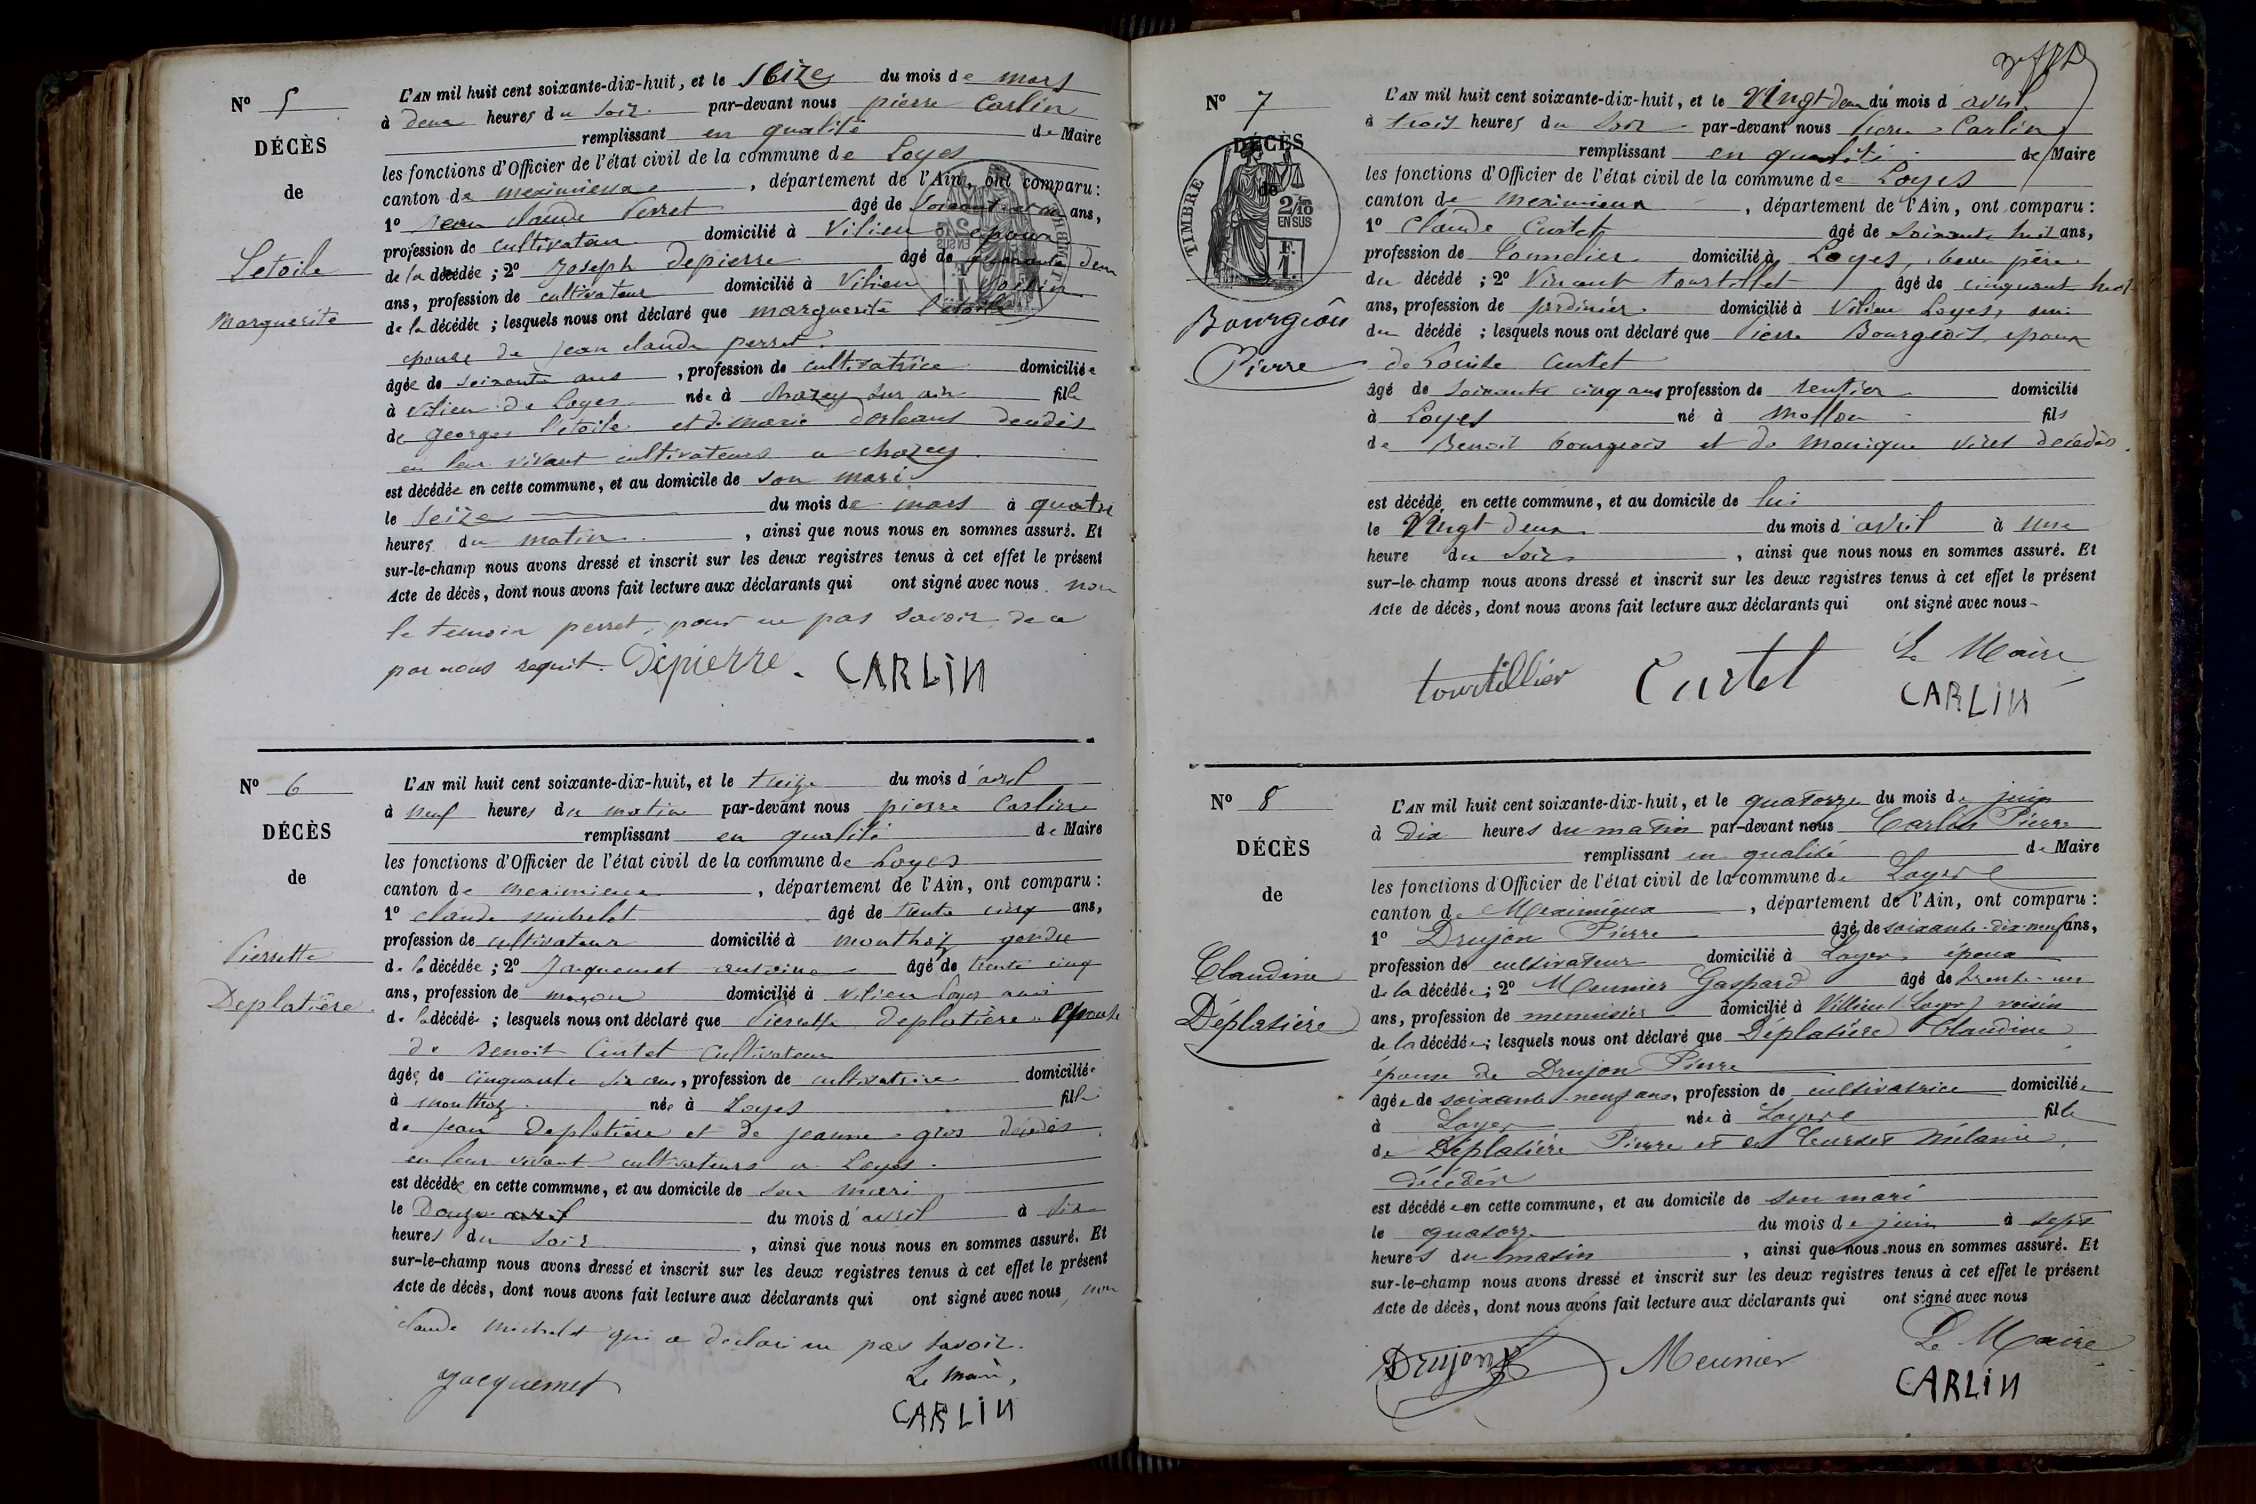 N° 5
DÉCÈS
de
Letoile
Marguerite
L'AN mil huit cent soixante-dix-huit, et le seize du mois de mars
à deux heures du soir par-devant nous pierre Carlin
remplissant en qualité de Maire
les fonctions d'Officier de l'état civil de la commune de Loyes
canton de meximieux, département de l'Ain, ont comparu :
1° Jean claude Perret âgé de ans,
profession de cultivateur domicilié à Vilieu epoux
de la décédée ; 2° Joseph Depierre âgé de deux
ans, profession de cultivateur domicilié à Vilieu voisin
de la décédée ; lesquels nous ont déclaré que marguerite l'étoile
epouse de jean claude perret
âgée de soixante ans, profession de cultivatrice domiciliée
à vilieu de Loyes née à chazey sur ain fille
de georges l'etoile et de marie dorleans décédés
en leur vivant cultivateurs a chazey.
est décédée en cette commune, et au domicile de son mari
le seize du mois de mars à quatre
heures du matin, ainsi que nous nous en sommes assuré. Et
sur-le-champ nous avons dressé et inscrit sur les deux registres tenus à cet effet le présent
Acte de décès, dont nous avons fait lecture aux déclarants qui ont signé avec nous. non
le temoin perret, pour ne pas savoir de ce
par nous requit. Depierre. CARLIN
N° 6
DÉCÈS
de
Pierrette
Deplatière
L'AN mil huit cent soixante-dix-huit, et le treize du mois d'avril
à neuf heures du matin par-devant nous pierre Carlin
remplissant en qualité de Maire
les fonctions d'Officier de l'état civil de la commune de Loyes
canton de meximieux, département de l'Ain, ont comparu :
1° claude michelet âgé de trente cinq ans,
profession de cultivateur domicilié à monthoz gendre
de la décédée ; 2° Jacquemet antoine âgé de trente cinq
ans, profession de maçon domicilié à vilieu Loyes ami
de la décédée ; lesquels nous ont déclaré que Pierrette deplatière Epouse
de Benoit Curtet cultivateur
âgée de cinquante six ans, profession de cultivatrice domiciliée
à monthoz née à Loyes fille
de jean Deplatière et de jeanne gros décédés
en leur vivant cultivateurs a Loyes.
est décédée en cette commune, et au domicile de son mari
le Douze avril du mois d'avril à six
heures du soir, ainsi que nous nous en sommes assuré. Et
sur-le-champ nous avons dressé et inscrit sur les deux registres tenus à cet effet le présent
Acte de décès, dont nous avons fait lecture aux déclarants qui ont signé avec nous, non
claude michelet qui a declaré ne pas savoir.
Jacquemet Le maire,
CARLIN
N° 7
DÉCÈS
de
TIMBRE
2/10
EN SUS
F.
1.
Bourgeois
Pierre
L'AN mil huit cent soixante-dix-huit, et le vingt deux du mois d'avril
à trois heures du soir par-devant nous Pierre Carlin
remplissant en qualité de Maire
les fonctions d'Officier de l'état civil de la commune de Loyes
canton de meximieux, département de l'Ain, ont comparu :
1° Claude Curtet âgé de soixante huit ans,
profession de Tonnelier domicilié à Loyes, beau père
du décédé ; 2° Vincent tourtillet âgé de cinquante huit
ans, profession de jardinier domicilié à Vilieu Loyes, ami
du décédé ; lesquels nous ont déclaré que Pierre Bourgeois, epoux
de Louise Curtet
âgé de soixante cinq ans profession de rentier domicilié
à Loyes né à mollon fils
de Benoit bourgeois et de monique viret décédés.
est décédé en cette commune, et au domicile de lui
le Vingt deux du mois d'avril à une
heure du soir, ainsi que nous nous en sommes assuré. Et
sur-le-champ nous avons dressé et inscrit sur les deux registres tenus à cet effet le présent
Acte de décès, dont nous avons fait lecture aux déclarants qui ont signé avec nous
tourtillier Curtet Le Maire
CARLIN
N° 8
DÉCÈS
de
Claudine
Déplatière
L'AN mil huit cent soixante-dix-huit, et le quatorze du mois de juin
à dix heures du matin par-devant nous Carlin Pierre
remplissant en qualité de Maire
les fonctions d'Officier de l'état civil de la commune de Loyes
canton de Meximieux, département de l'Ain, ont comparu :
1° Drujon Pierre âgé de soixante-dix-neuf ans,
profession de cultivateur domicilié à Loyes époux
de la décédée ; 2° Meunier Gaspard âgé de trente-un
ans, profession de menuisier domicilié à Villieu Loyes voisin
de la décédée ; lesquels nous ont déclaré que Déplatière Claudine
épouse de Drujon Pierre
âgée de soixante-neuf ans, profession de cultivatrice domiciliée
à Loyes née à Loyes fille
de Déplatière Pierre et de Mélanie
décédés
est décédée en cette commune, et au domicile de son mari
le quatorze du mois de juin à sept
heures du matin, ainsi que nous nous en sommes assuré. Et
sur-le-champ nous avons dressé et inscrit sur les deux registres tenus à cet effet le présent
Acte de décès, dont nous avons fait lecture aux déclarants qui ont signé avec nous
Drujon Meunier Le Maire
CARLIN